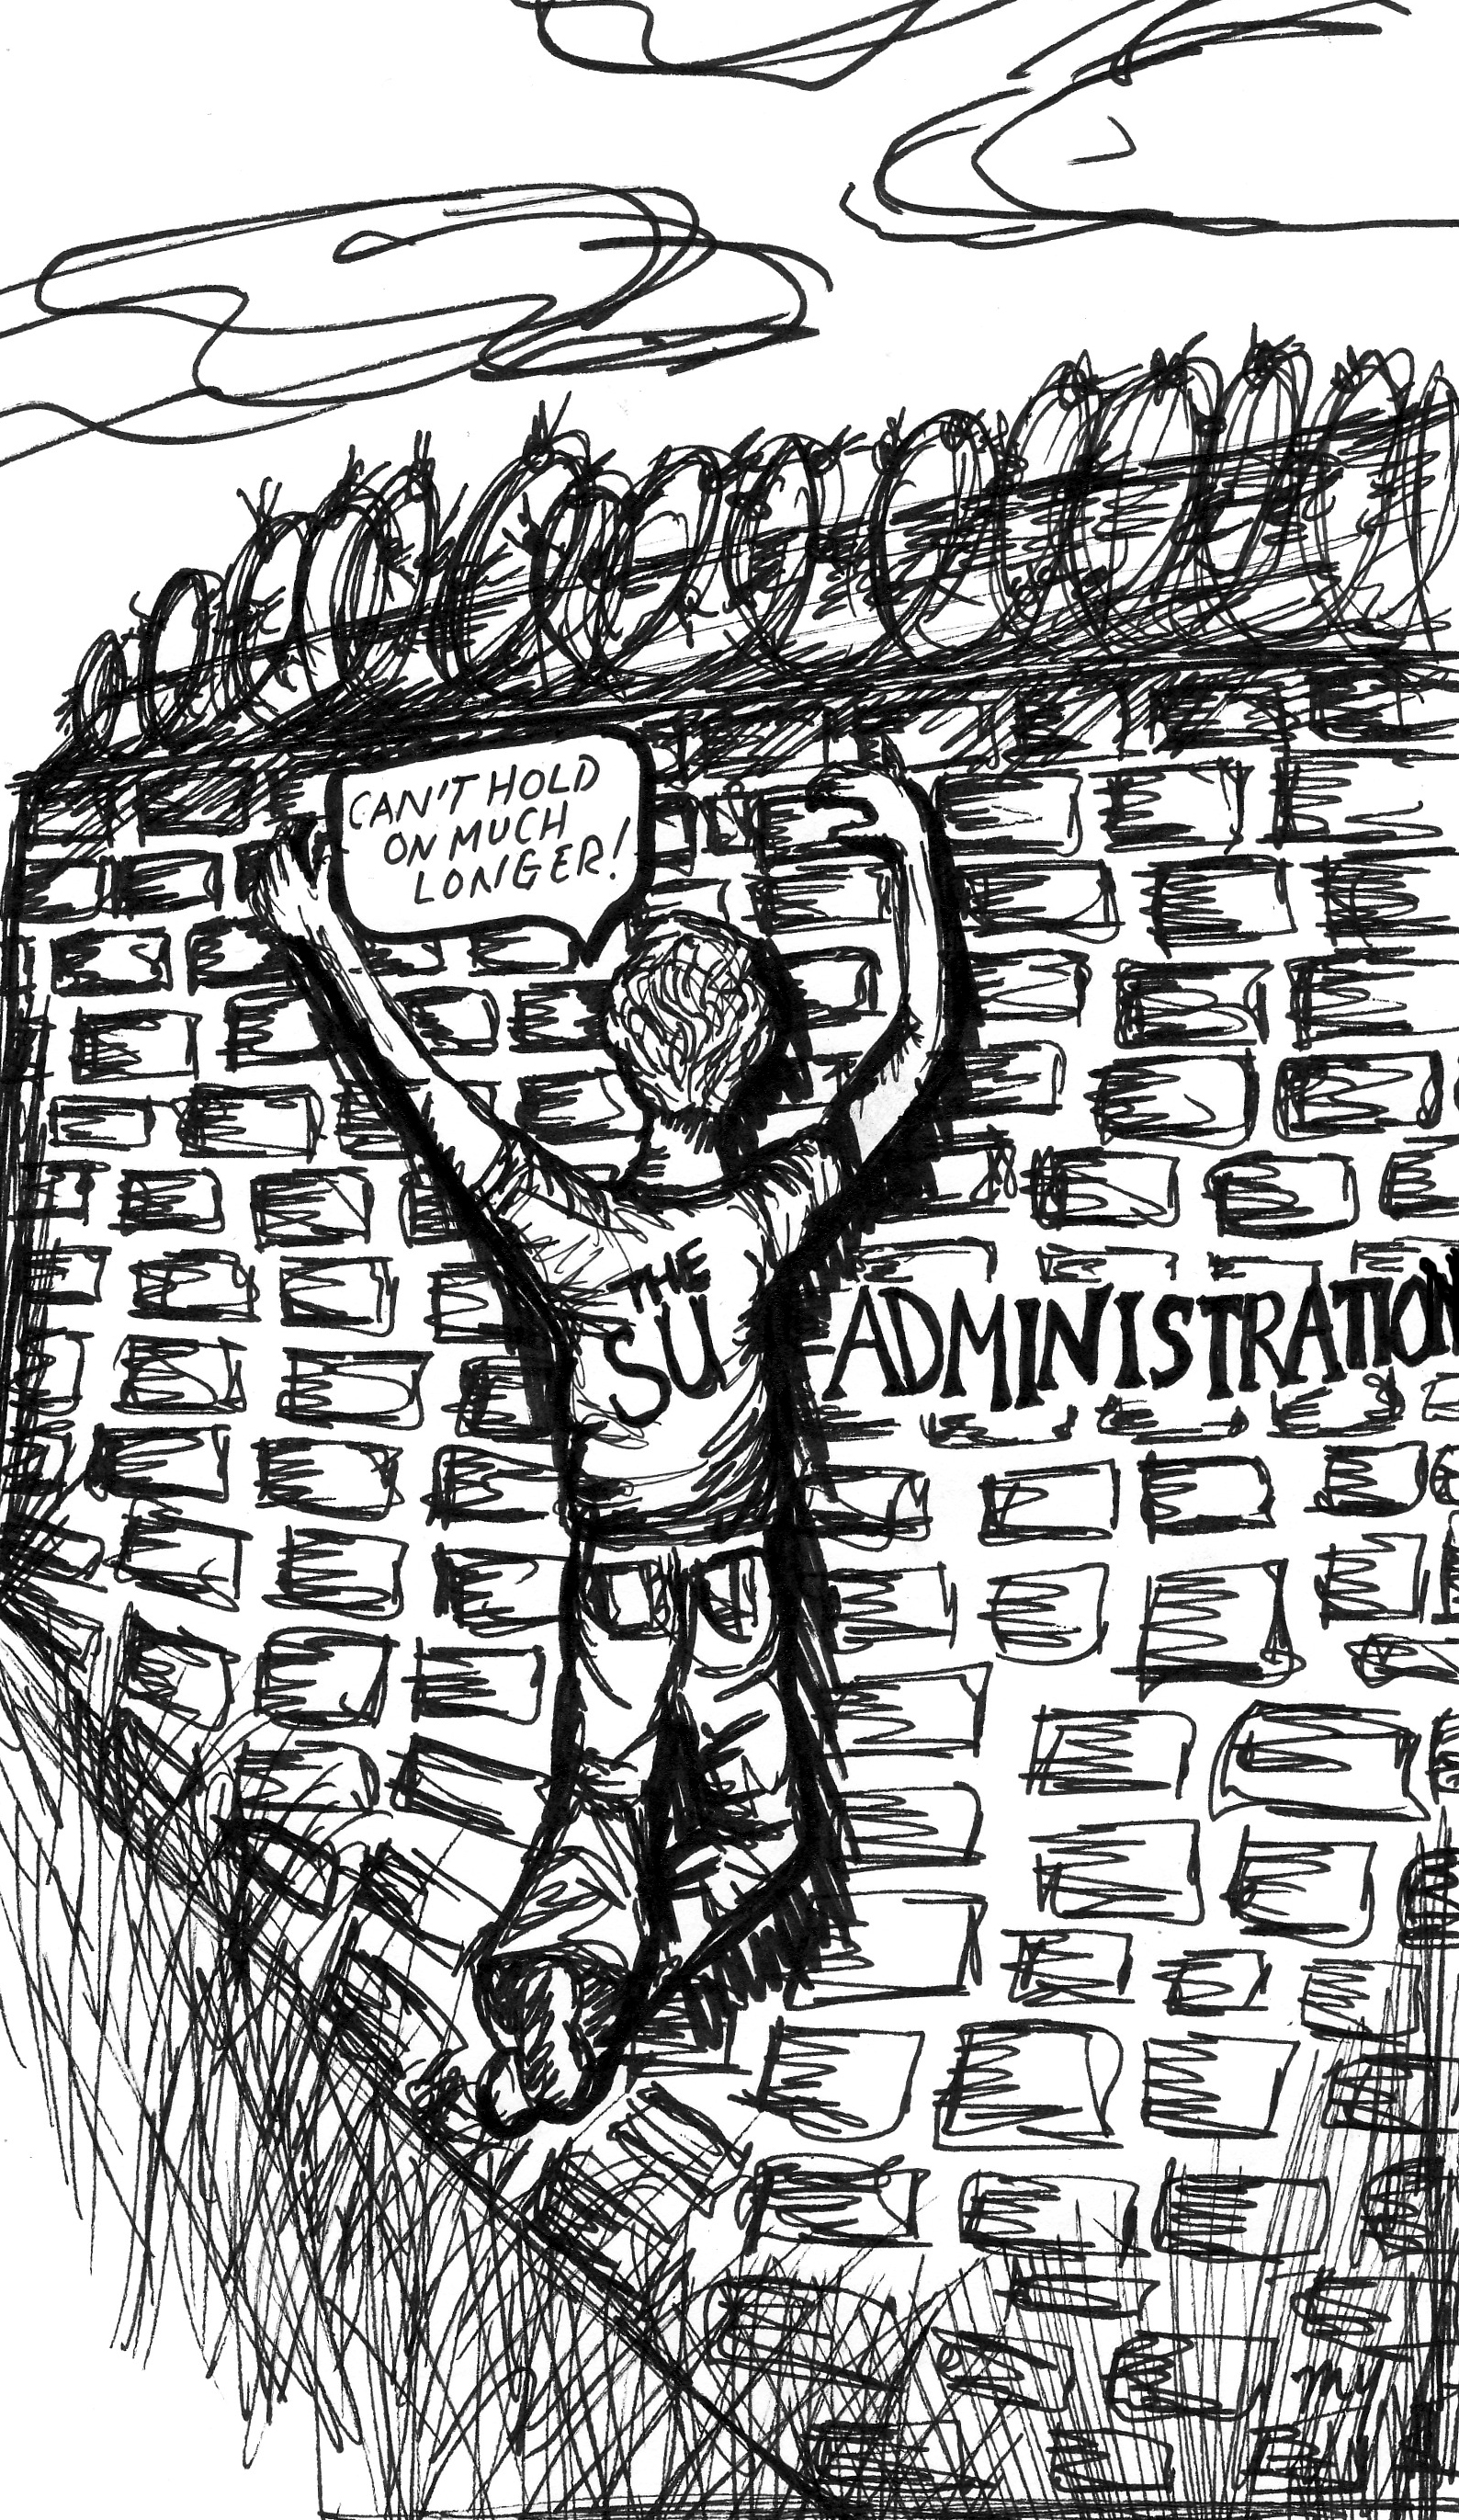 CAN'T HOLD
ON MUCH
LONGER!
THE
SU
ADMINISTRATION
my